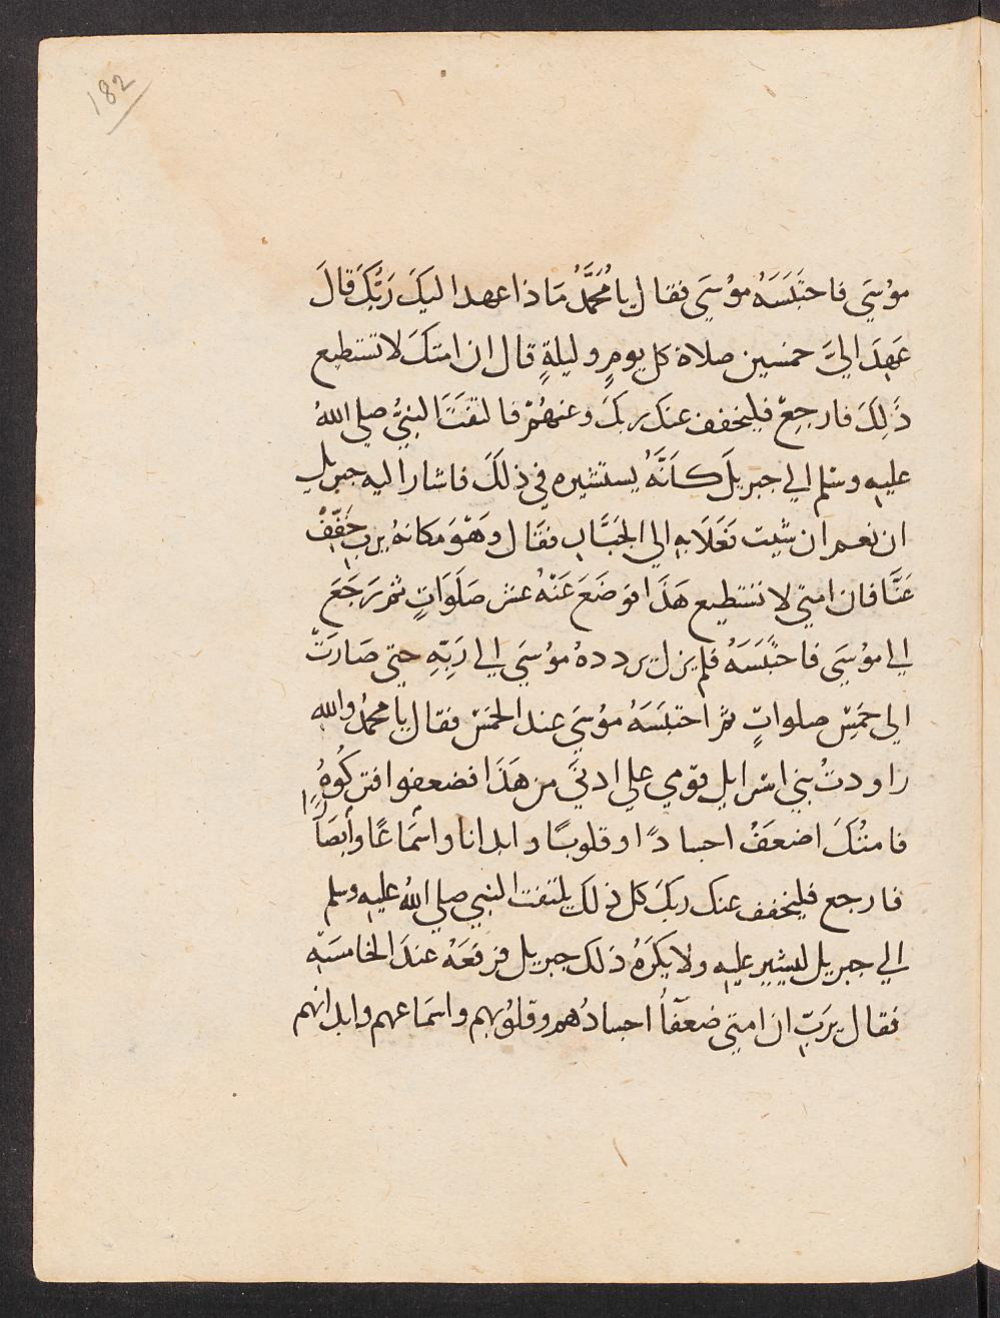 182
موُسَي فاحتَبَسَهُ موُسَي فقال يا مُحَمَّدُ مَاذا عهد اليكَ رَبُّكَ قالَ
عَهِدَ اليَّ خمسين صلاة كل يومٍ وليلةٍ قال ان امتكَ لا تستطيع
ذَلِكَ فارجِعْ فليخفف عنك ربكَ وعنهُمْ فالتفَتَ النبيُّ صلي اللهُ
عليه وسلم الي جبريلَ كاَنَّهُ يستشيره في ذلَكَ فاشار اليه جبريل
ان نعم ان شيت فَعَلَا به الي الجَبَّاب فقَال وَهْوَ مكانهُ يرب خَفِّفْ
عَنَّا فان امتي لا تستطيع هَذَا فوَضَعَ عَنْهُ عشر صَلَوَاتٍ ثم رَجَعَ
الي موُسَي فاحْتَبَسَهُ فلم يزل يردده موُسَي الي رَبِّهِ حتي صَارَتْ
الي خمَسِ صلواتٍ ثم احتبَسَهُ موُسَي عند الخمَسْ فقال يا محمدُ والله
راودتُ بني اسرايل قومي علي ادنيَ من هَذَا فضعفوا فتركُوهُ
فامتُكَ اضعَفُ اجسادًا وقلوبًا وابدانا واسْمَاعًا وأبصَارًا
فارجع فليخفف عنك ربكَ كل ذلك يلتفت النبي صلي اللهُ عليه وسلم
الي جبريل ليشير عليه ولا يكرَهُ ذلك جبريل فرفعَهُ عندَ الخامسَة
فقال يرَبِّ ان امتي ضعَفآُ اجسادُهم وقلوُبهم واسمَاعهم وابدانهم